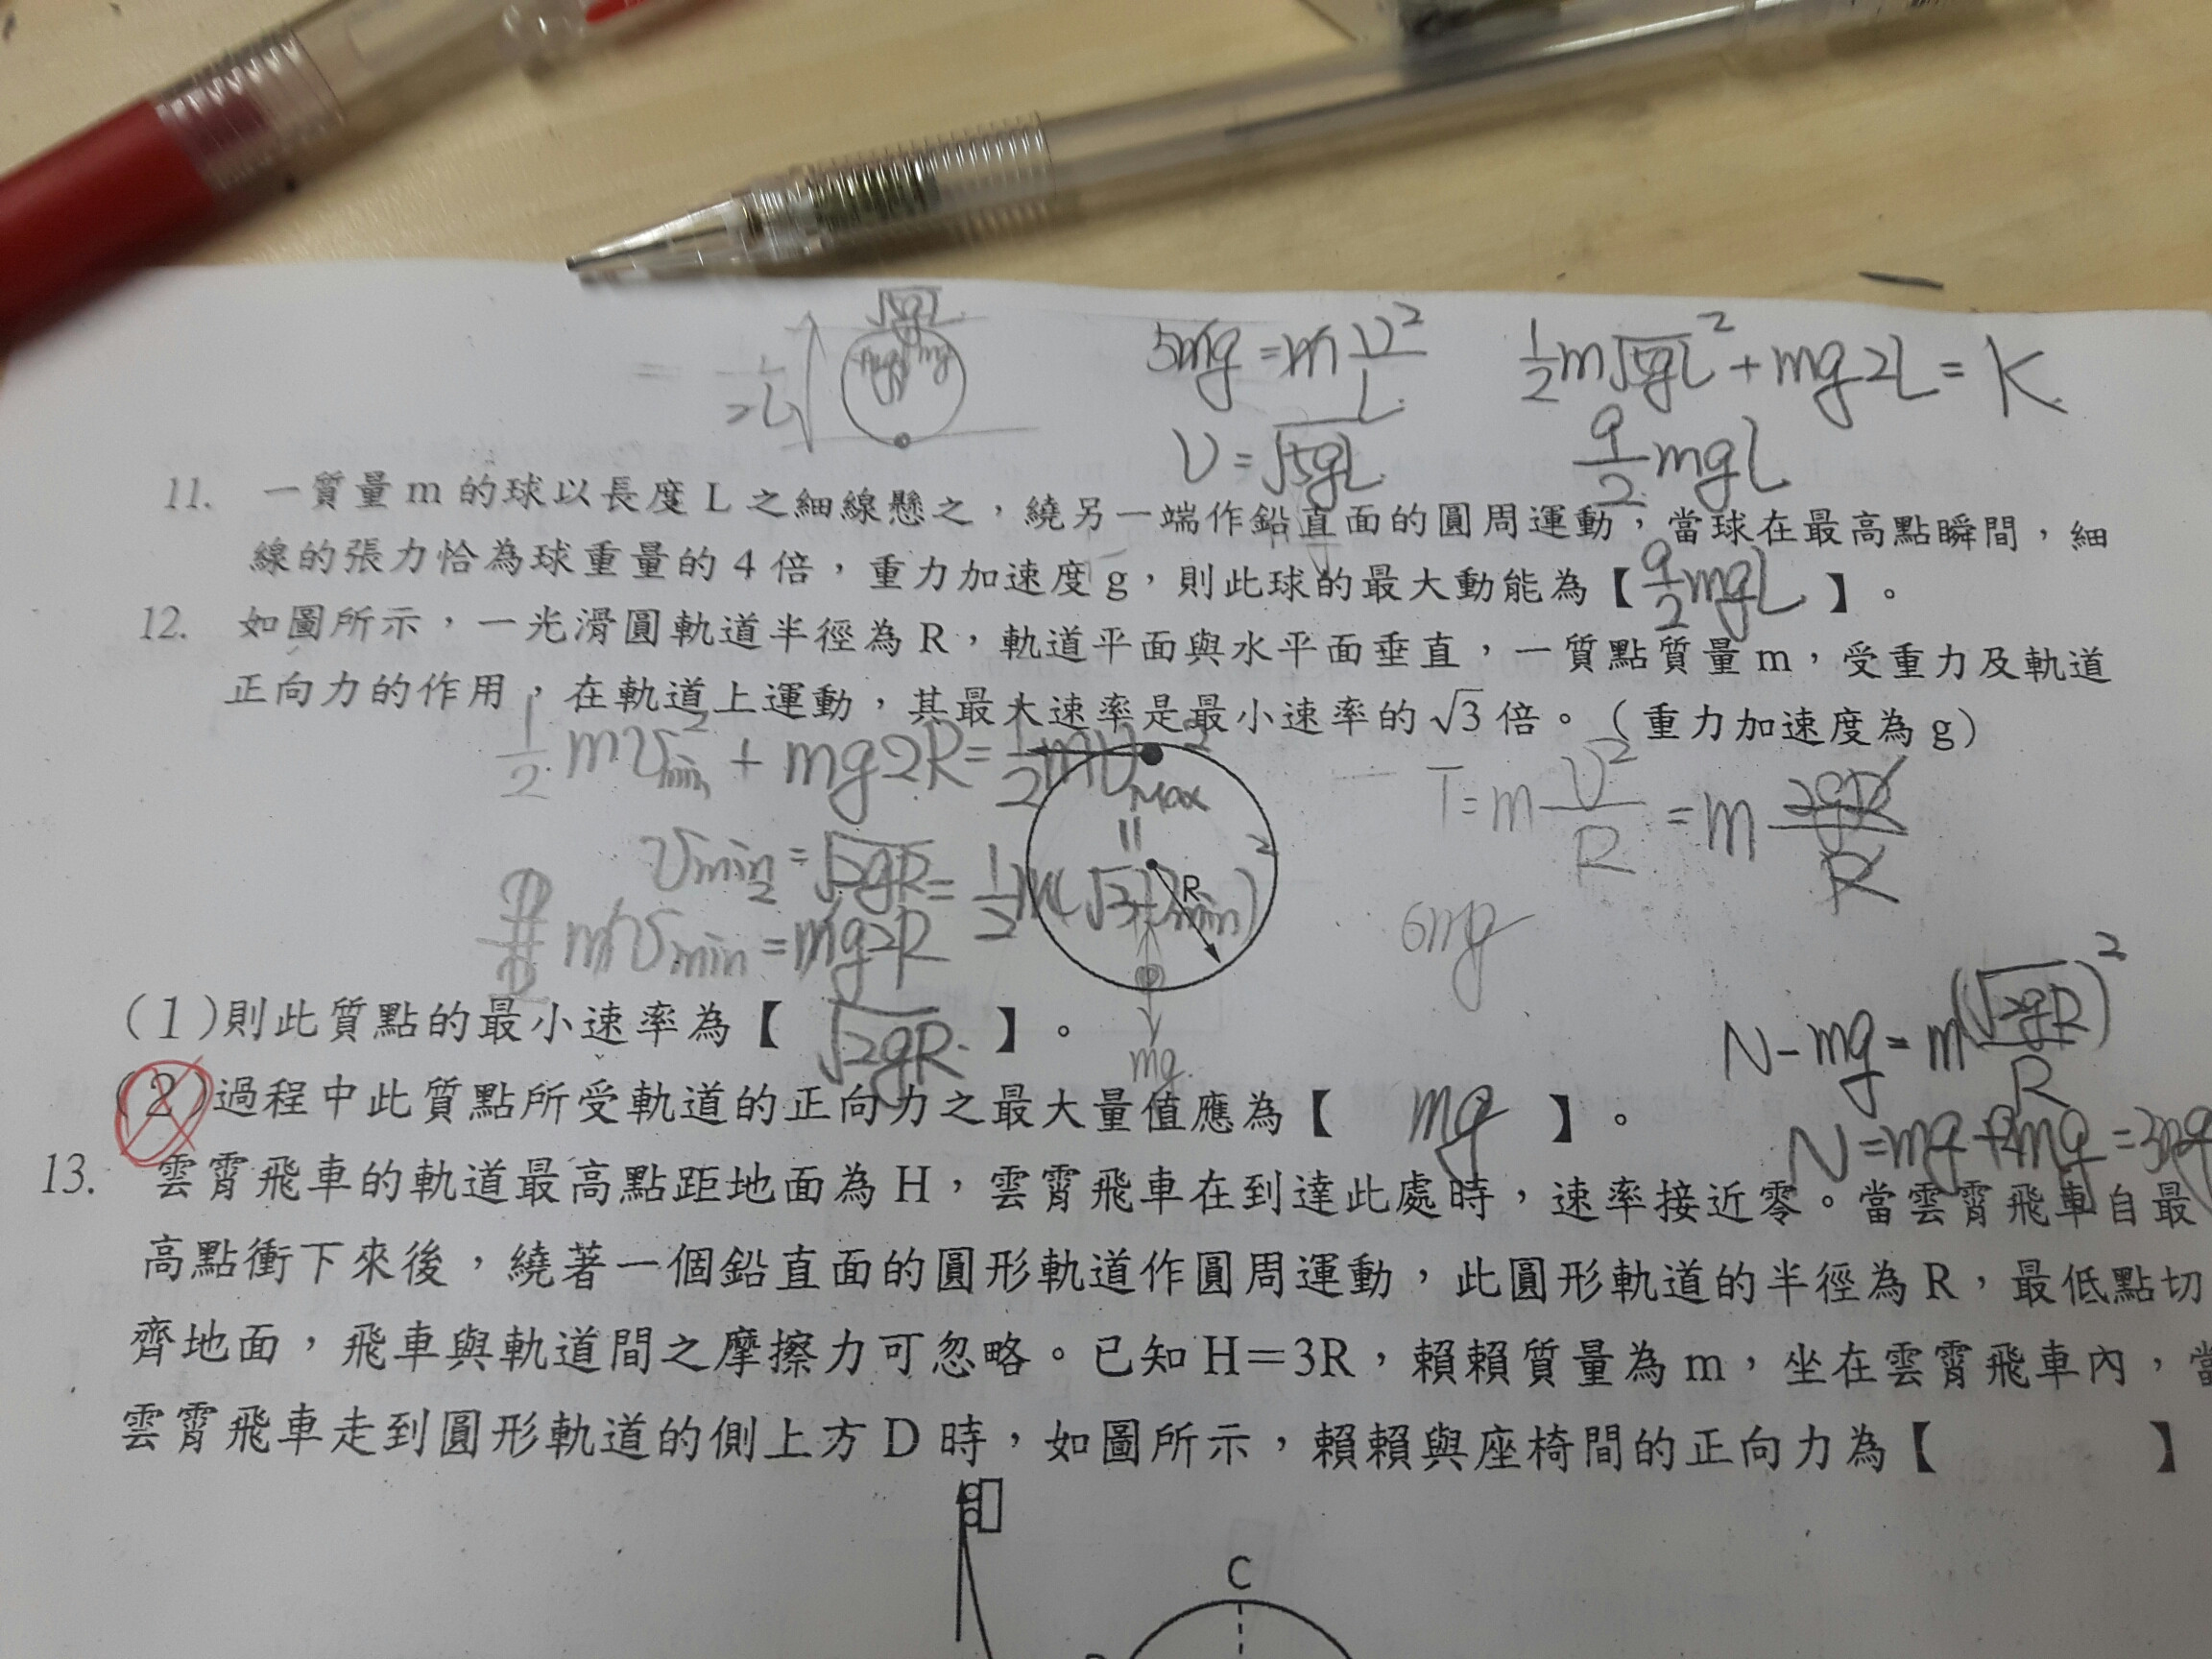 √5gL
2L
mg
5mg = m v²/L
½m√5gL² + mg2L = K
v = √5gL
9/2 mgL
11. 一質量 m 的球以長度 L 之細線懸之，繞另一端作鉛直面的圓周運動，當球在最高點瞬間，細
線的張力恰為球重量的 4 倍，重力加速度 g，則此球的最大動能為【9/2 mgL】。
12. 如圖所示，一光滑圓軌道半徑為 R，軌道平面與水平面垂直，一質點質量 m，受重力及軌道
正向力的作用，在軌道上運動，其最大速率是最小速率的 √3 倍。（重力加速度為 g）
½mv²min + mg2R = ½mv²Max
T = m v²/R = m 2gR/R
vmin = √2gR = ½m(√3vmin)²
R
mv²min = mg2R
6mg
mg
(1)則此質點的最小速率為【√2gR】。
N - mg = m (√2gR)²/R
(2)過程中此質點所受軌道的正向力之最大量值應為【mg】。
N = mg + 2mg = 3mg
13. 雲霄飛車的軌道最高點距地面為 H，雲霄飛車在到達此處時，速率接近零。當雲霄飛車自最
高點衝下來後，繞著一個鉛直面的圓形軌道作圓周運動，此圓形軌道的半徑為 R，最低點切
齊地面，飛車與軌道間之摩擦力可忽略。已知 H＝3R，賴賴質量為 m，坐在雲霄飛車內，當
雲霄飛車走到圓形軌道的側上方 D 時，如圖所示，賴賴與座椅間的正向力為【 】
C